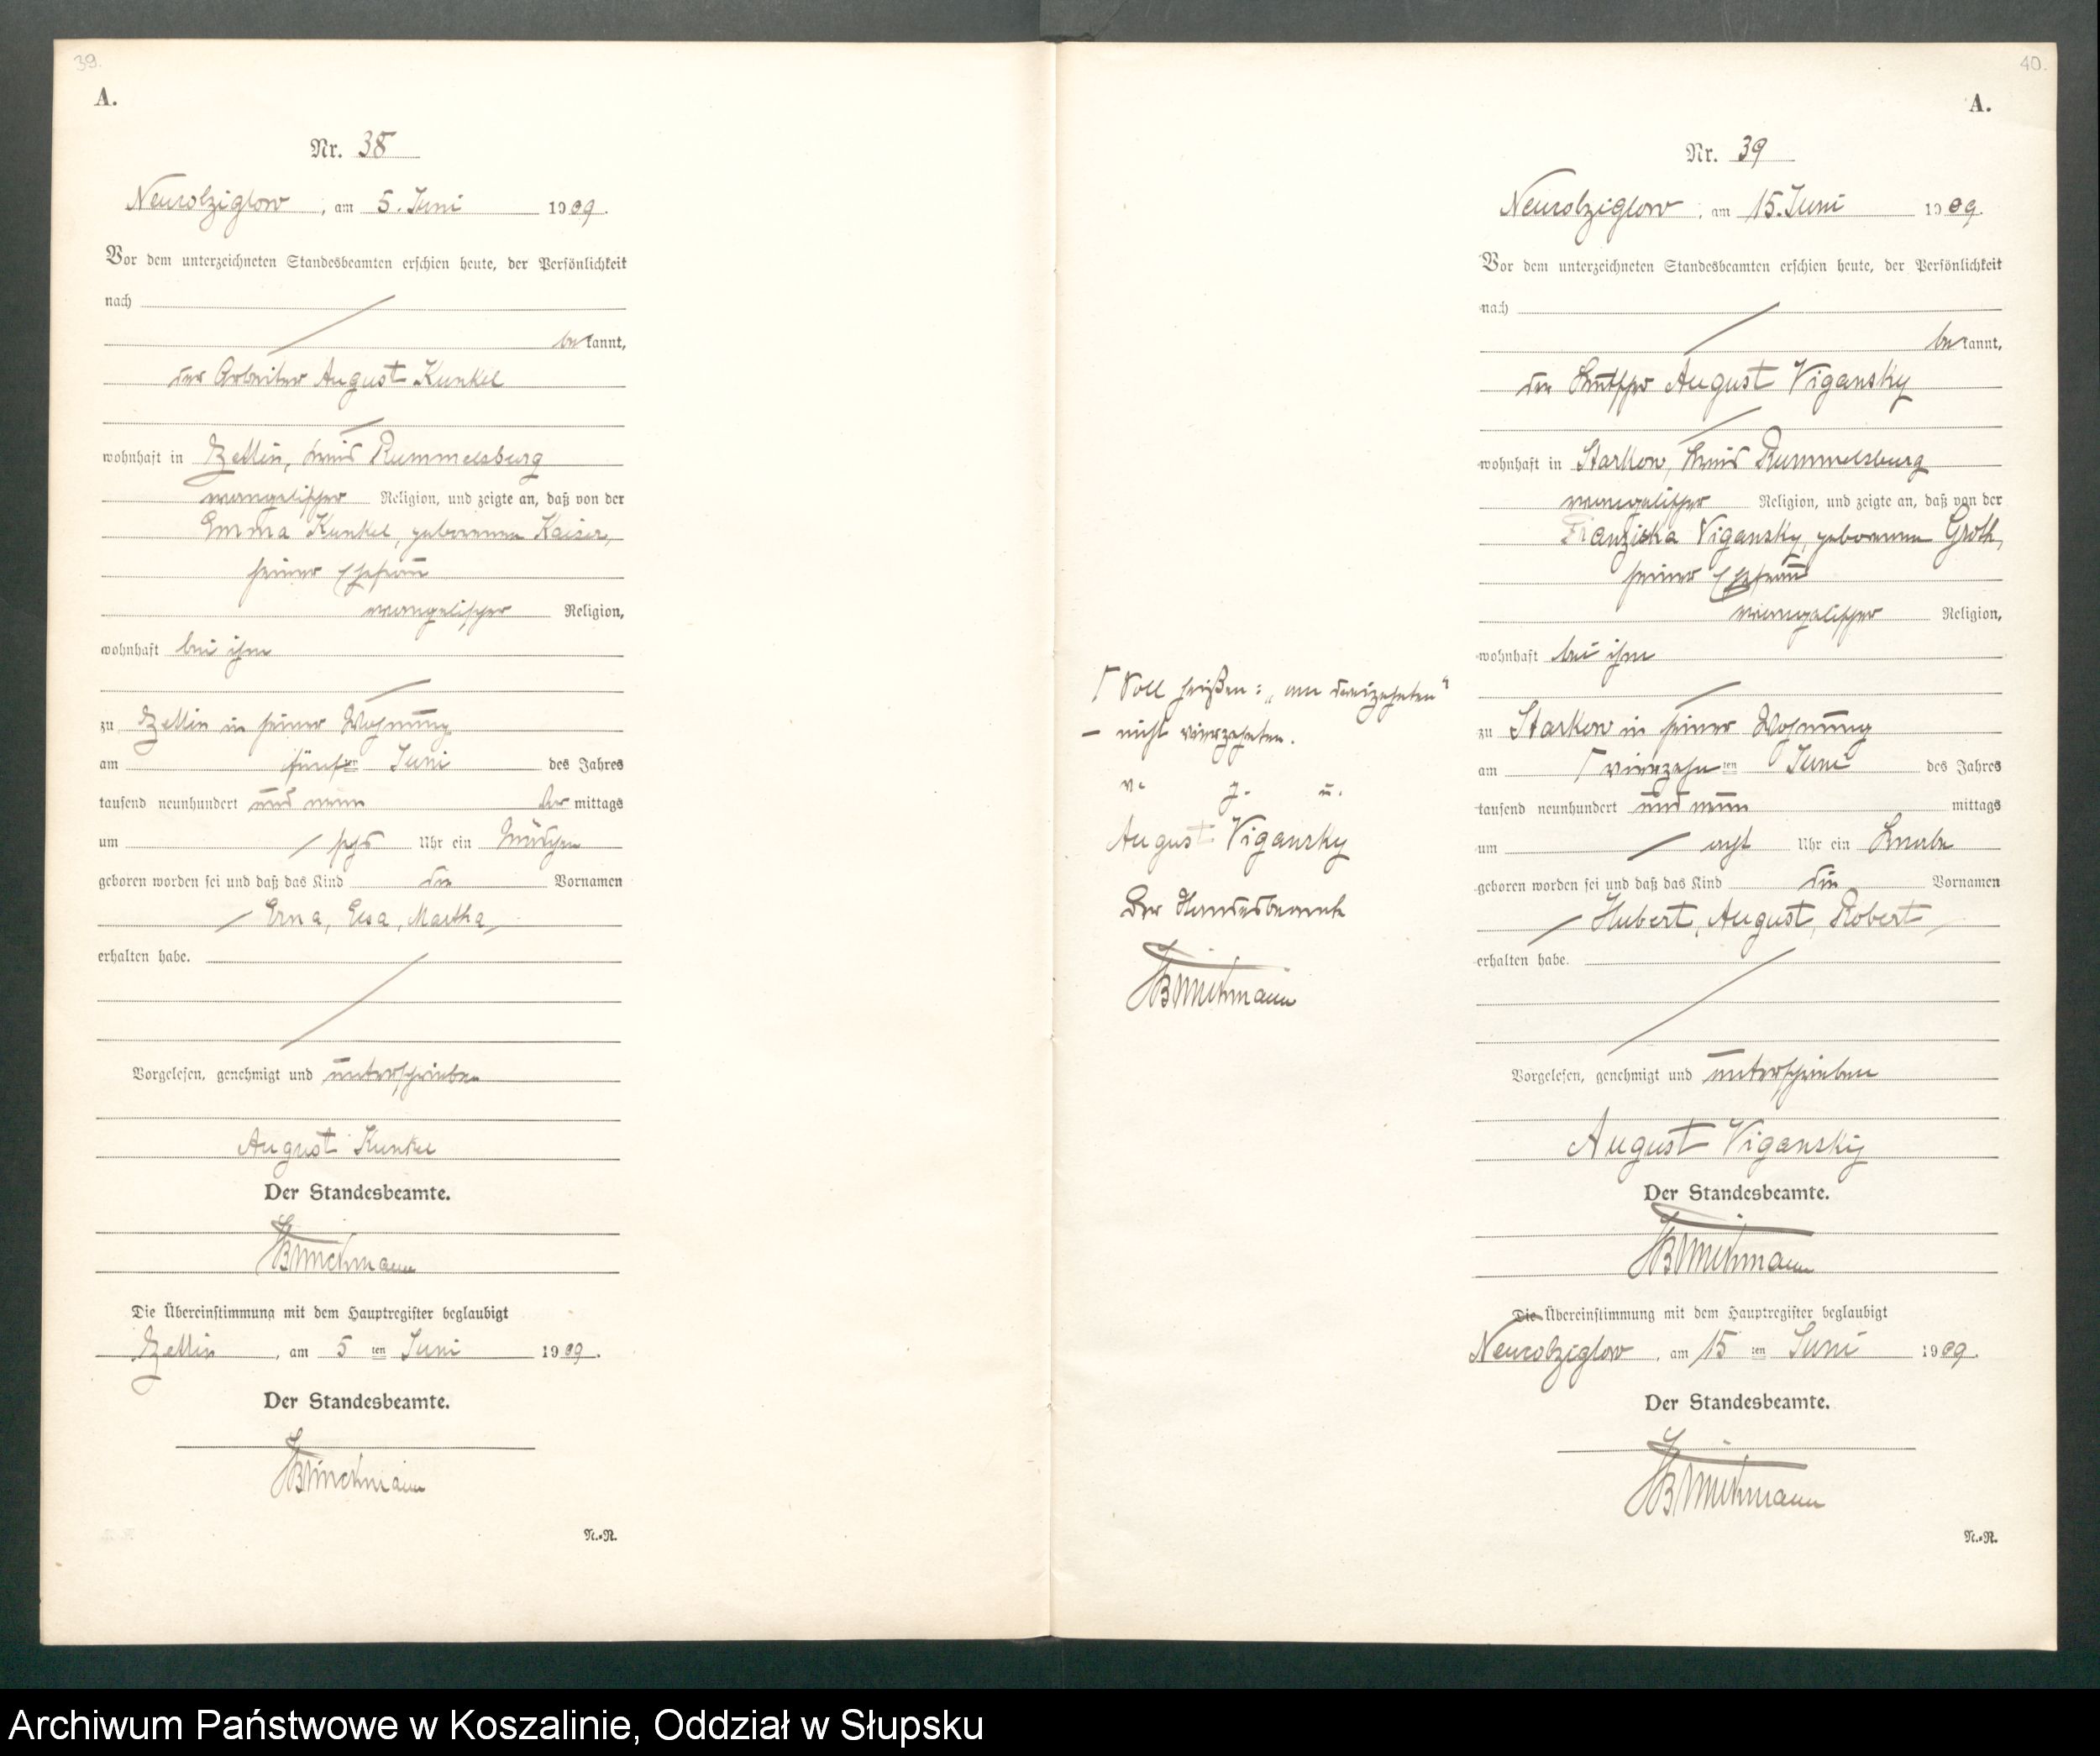 39.
A.
Nr. 38
Neukolziglow, am 5. Juni 1909.
Vor dem unterzeichneten Standesbeamten erschien heute, der Persönlichkeit
nach
bekannt,
der Arbeiter August Kunkel
wohnhaft in Zettin, Kreis Rummelsburg
evangelischer Religion, und zeigte an, daß von der
Emma Kunkel, geborenen Kaiser,
seiner Ehefrau
evangelischer Religion,
wohnhaft bei ihm
zu Zettin in seiner Wohnung
am fünften Juni des Jahres
tausend neunhundert und neun Vormittags
um sechs Uhr ein Mädchen
geboren worden sei und daß das Kind die Vornamen
Erna, Elsa, Martha,
erhalten habe.
Vorgelesen, genehmigt und unterschrieben
August Kunkel
Der Standesbeamte.
Brinckmann
Die Übereinstimmung mit dem Hauptregister beglaubigt
Zettin, am 5ten Juni 1909.
Der Standesbeamte.
Brinckmann
N.-R.
40.
A.
Nr. 39
Neukolziglow, am 15. Juni 1909.
Vor dem unterzeichneten Standesbeamten erschien heute, der Persönlichkeit
nach
bekannt,
der Kutscher August Vigansky
wohnhaft in Starkow, Kreis Rummelsburg
evangelischer Religion, und zeigte an, daß von der
Franziska Vigansky, geborenen Groth,
seiner Ehefrau
evangelischer Religion,
wohnhaft bei ihm
zu Starkow in seiner Wohnung
am Γ vierzehnten Juni des Jahres
tausend neunhundert und neun mittags
um acht Uhr ein Knabe
geboren worden sei und daß das Kind die Vornamen
Hubert, August, Robert,
erhalten habe.
Vorgelesen, genehmigt und unterschrieben
August Vigansky
Der Standesbeamte.
Brinckmann
Die Übereinstimmung mit dem Hauptregister beglaubigt
Neukolziglow, am 15ten Juni 1909.
Der Standesbeamte.
Brinckmann
N.-R.
Γ Soll heißen: „am dreizehnten"
– nicht vierzehnten.
v. g. u.
August Vigansky
Der Standesbeamte
Brinckmann
Archiwum Państwowe w Koszalinie, Oddział w Słupsku